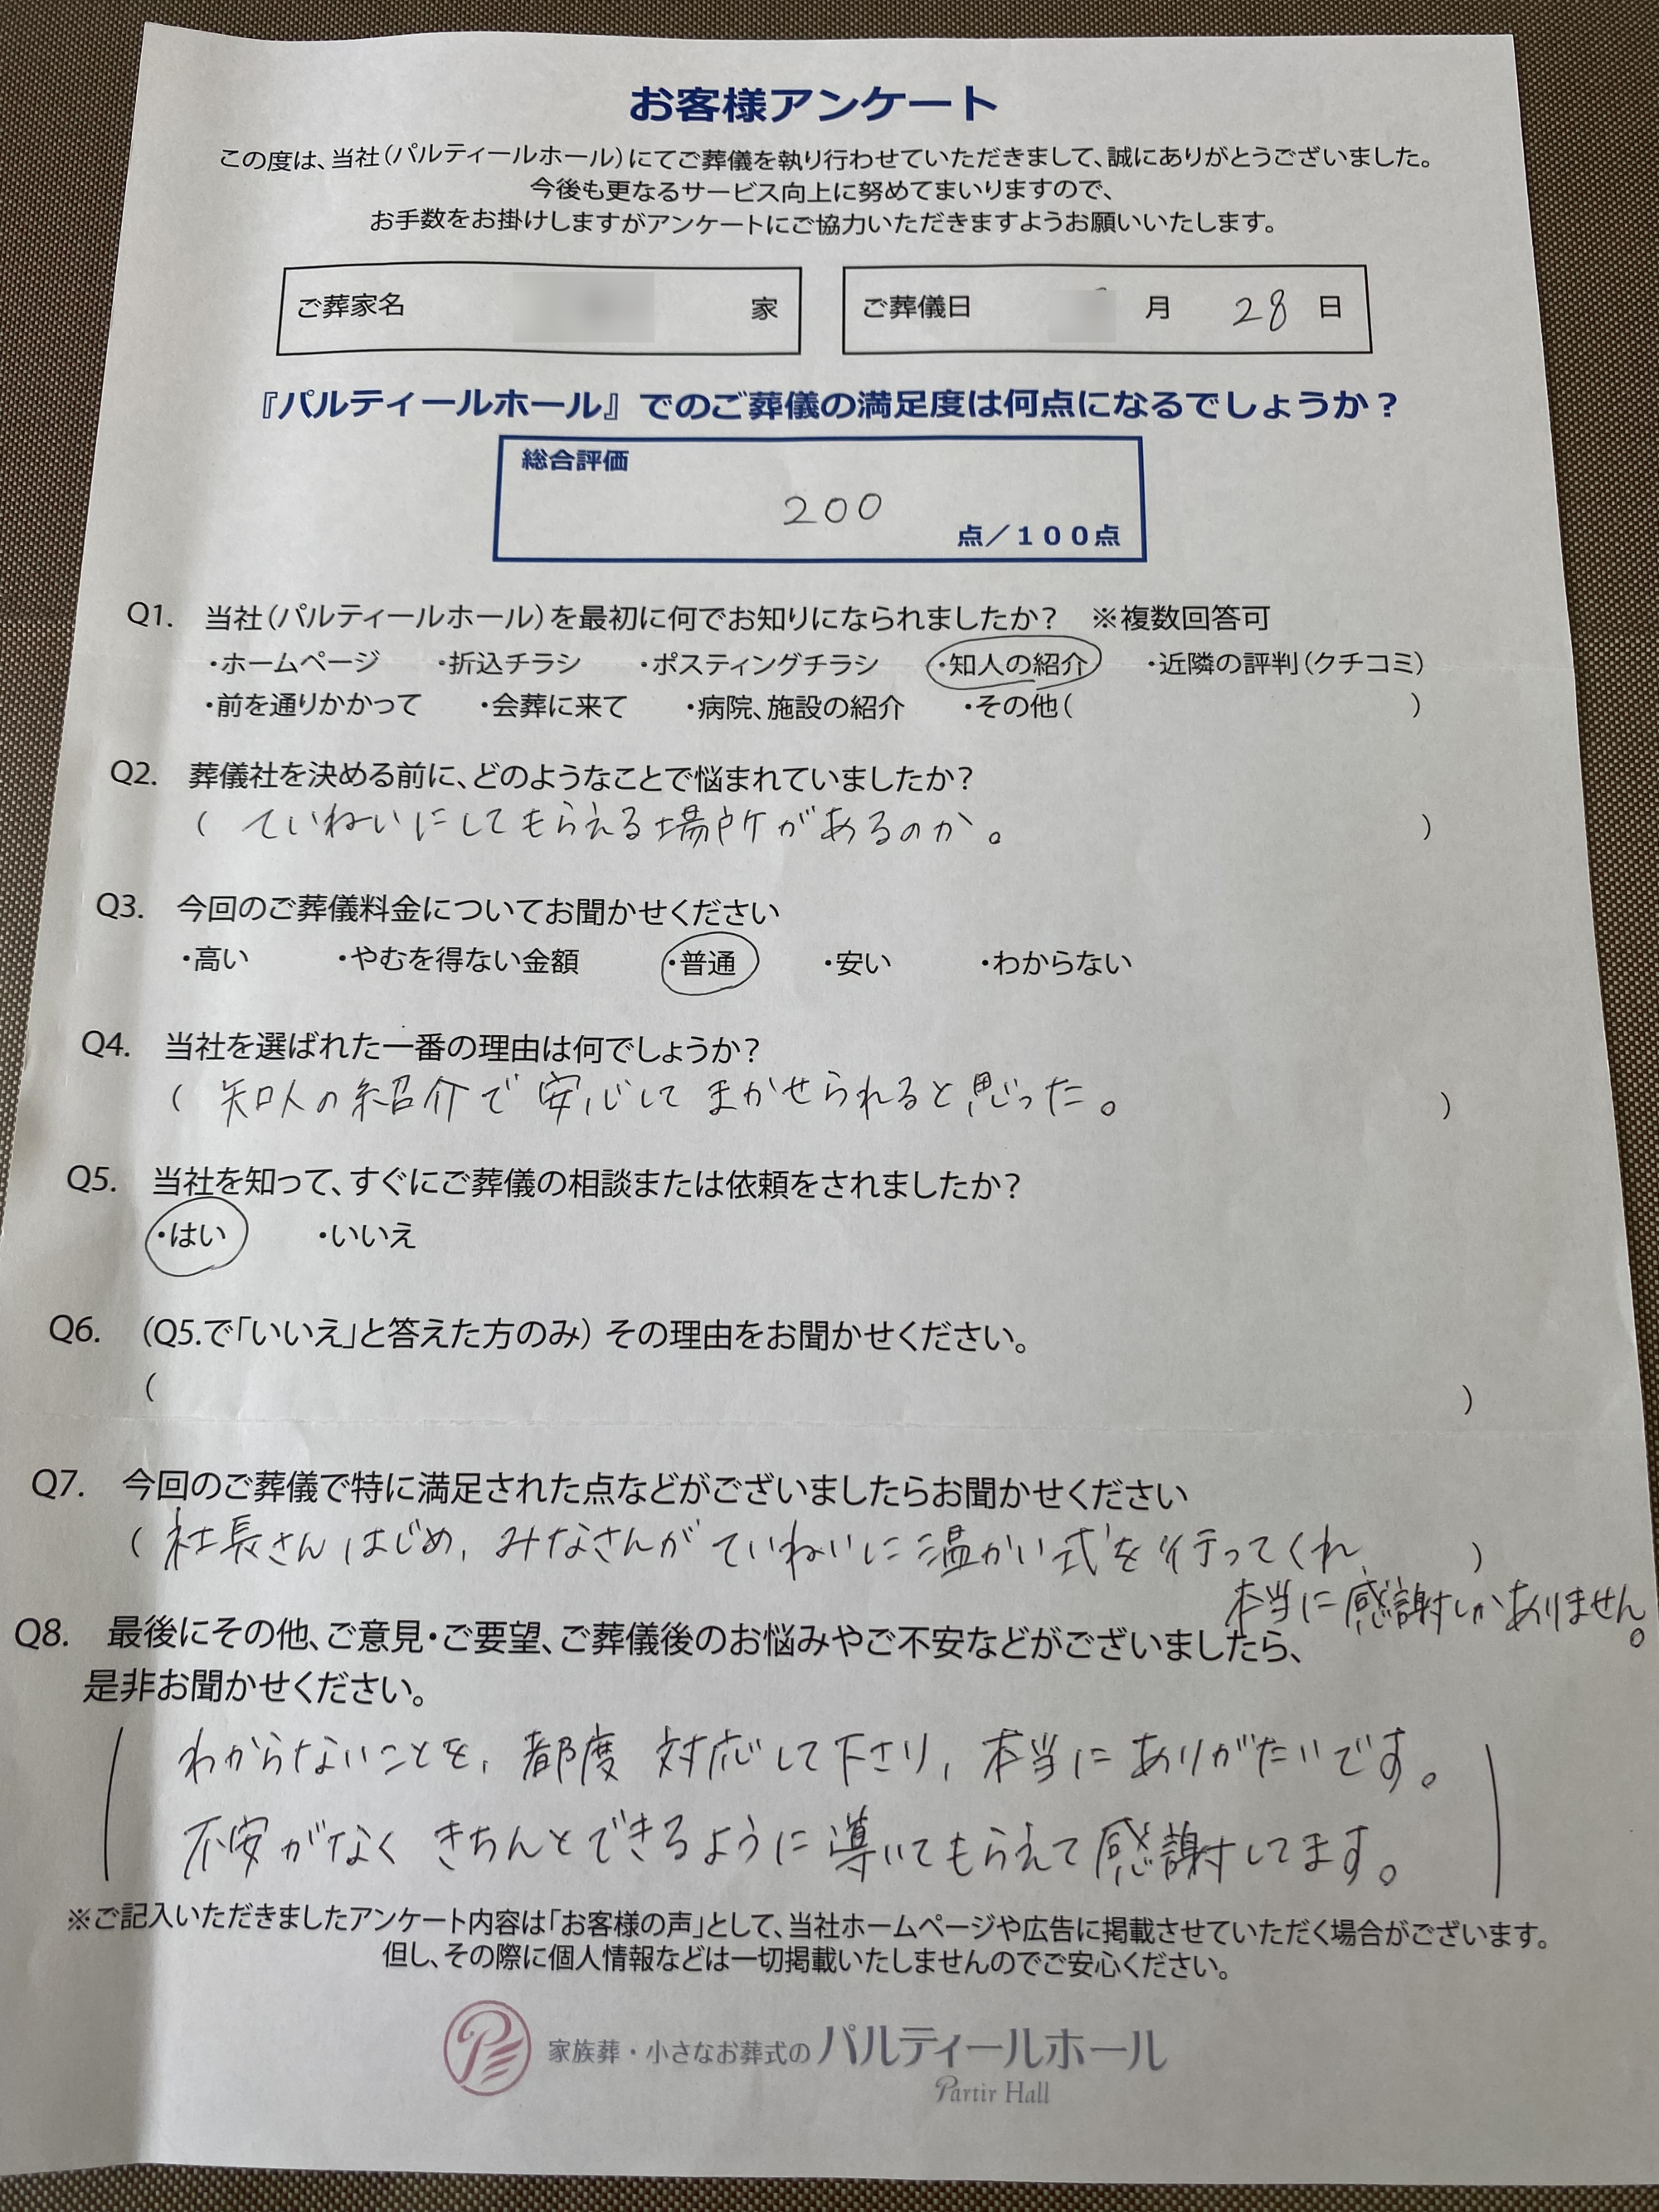 お客様アンケート
この度は、当社(パルティールホール)にてご葬儀を執り行わせていただきまして、誠にありがとうございました。
今後も更なるサービス向上に努めてまいりますので、
お手数をお掛けしますがアンケートにご協力いただきますようお願いいたします。
ご葬家名 家 ご葬儀日 月 28 日
『パルティールホール』でのご葬儀の満足度は何点になるでしょうか？
総合評価
200
点／１００点
Q1. 当社(パルティールホール)を最初に何でお知りになられましたか？ ※複数回答可
・ホームページ ・折込チラシ ・ポスティングチラシ ・知人の紹介 ・近隣の評判(クチコミ)
・前を通りかかって ・会葬に来て ・病院、施設の紹介 ・その他( )
Q2. 葬儀社を決める前に、どのようなことで悩まれていましたか？
( ていねいにしてもらえる場所があるのか。 )
Q3. 今回のご葬儀料金についてお聞かせください
・高い ・やむを得ない金額 ・普通 ・安い ・わからない
Q4. 当社を選ばれた一番の理由は何でしょうか？
( 知人の紹介で安心してまかせられると思った。 )
Q5. 当社を知って、すぐにご葬儀の相談または依頼をされましたか？
・はい ・いいえ
Q6. (Q5.で「いいえ」と答えた方のみ) その理由をお聞かせください。
( )
Q7. 今回のご葬儀で特に満足された点などがございましたらお聞かせください
( 社長さんはじめ、みなさんがていねいに温かい式を行ってくれ、 )
本当に感謝しかありません。
Q8. 最後にその他、ご意見・ご要望、ご葬儀後のお悩みやご不安などがございましたら、
是非お聞かせください。
わからないことを、都度 対応して下さり、本当にありがたいです。
不安がなく きちんとできるように導いてもらえて感謝してます。
※ご記入いただきましたアンケート内容は「お客様の声」として、当社ホームページや広告に掲載させていただく場合がございます。
但し、その際に個人情報などは一切掲載いたしませんのでご安心ください。
家族葬・小さなお葬式の パルティールホール
Partir Hall